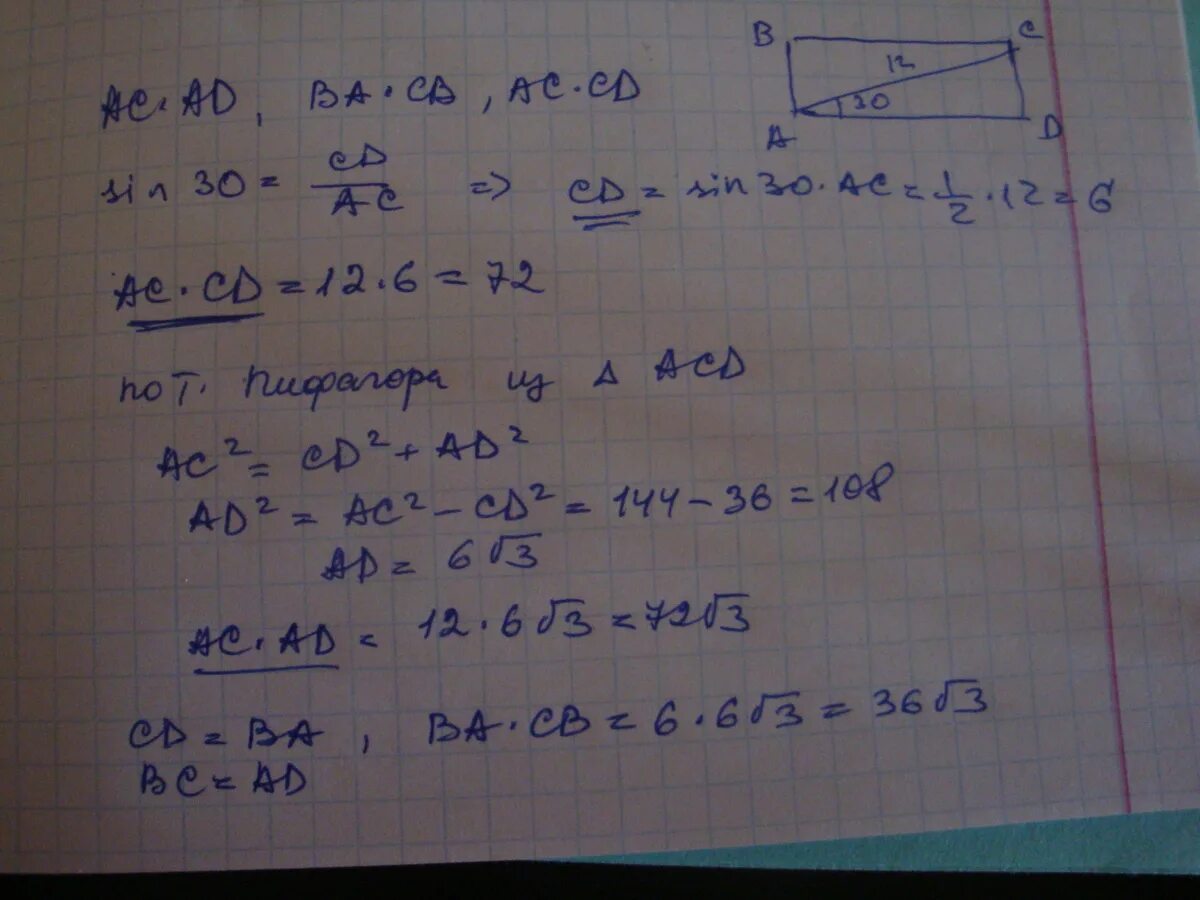 B C
12
30
A D
AC · AD, BA · CB, AC · CD
sin 30 = CD/AC => CD = sin 30 · AC = 1/2 · 12 = 6
AC · CD = 12 · 6 = 72
по т. Пифагора из Δ ACD
AC² = CD² + AD²
AD² = AC² − CD² = 144 − 36 = 108
AD = 6√3
AC · AD = 12 · 6√3 = 72√3
CD = BA, BA · CB = 6 · 6√3 = 36√3
BC = AD